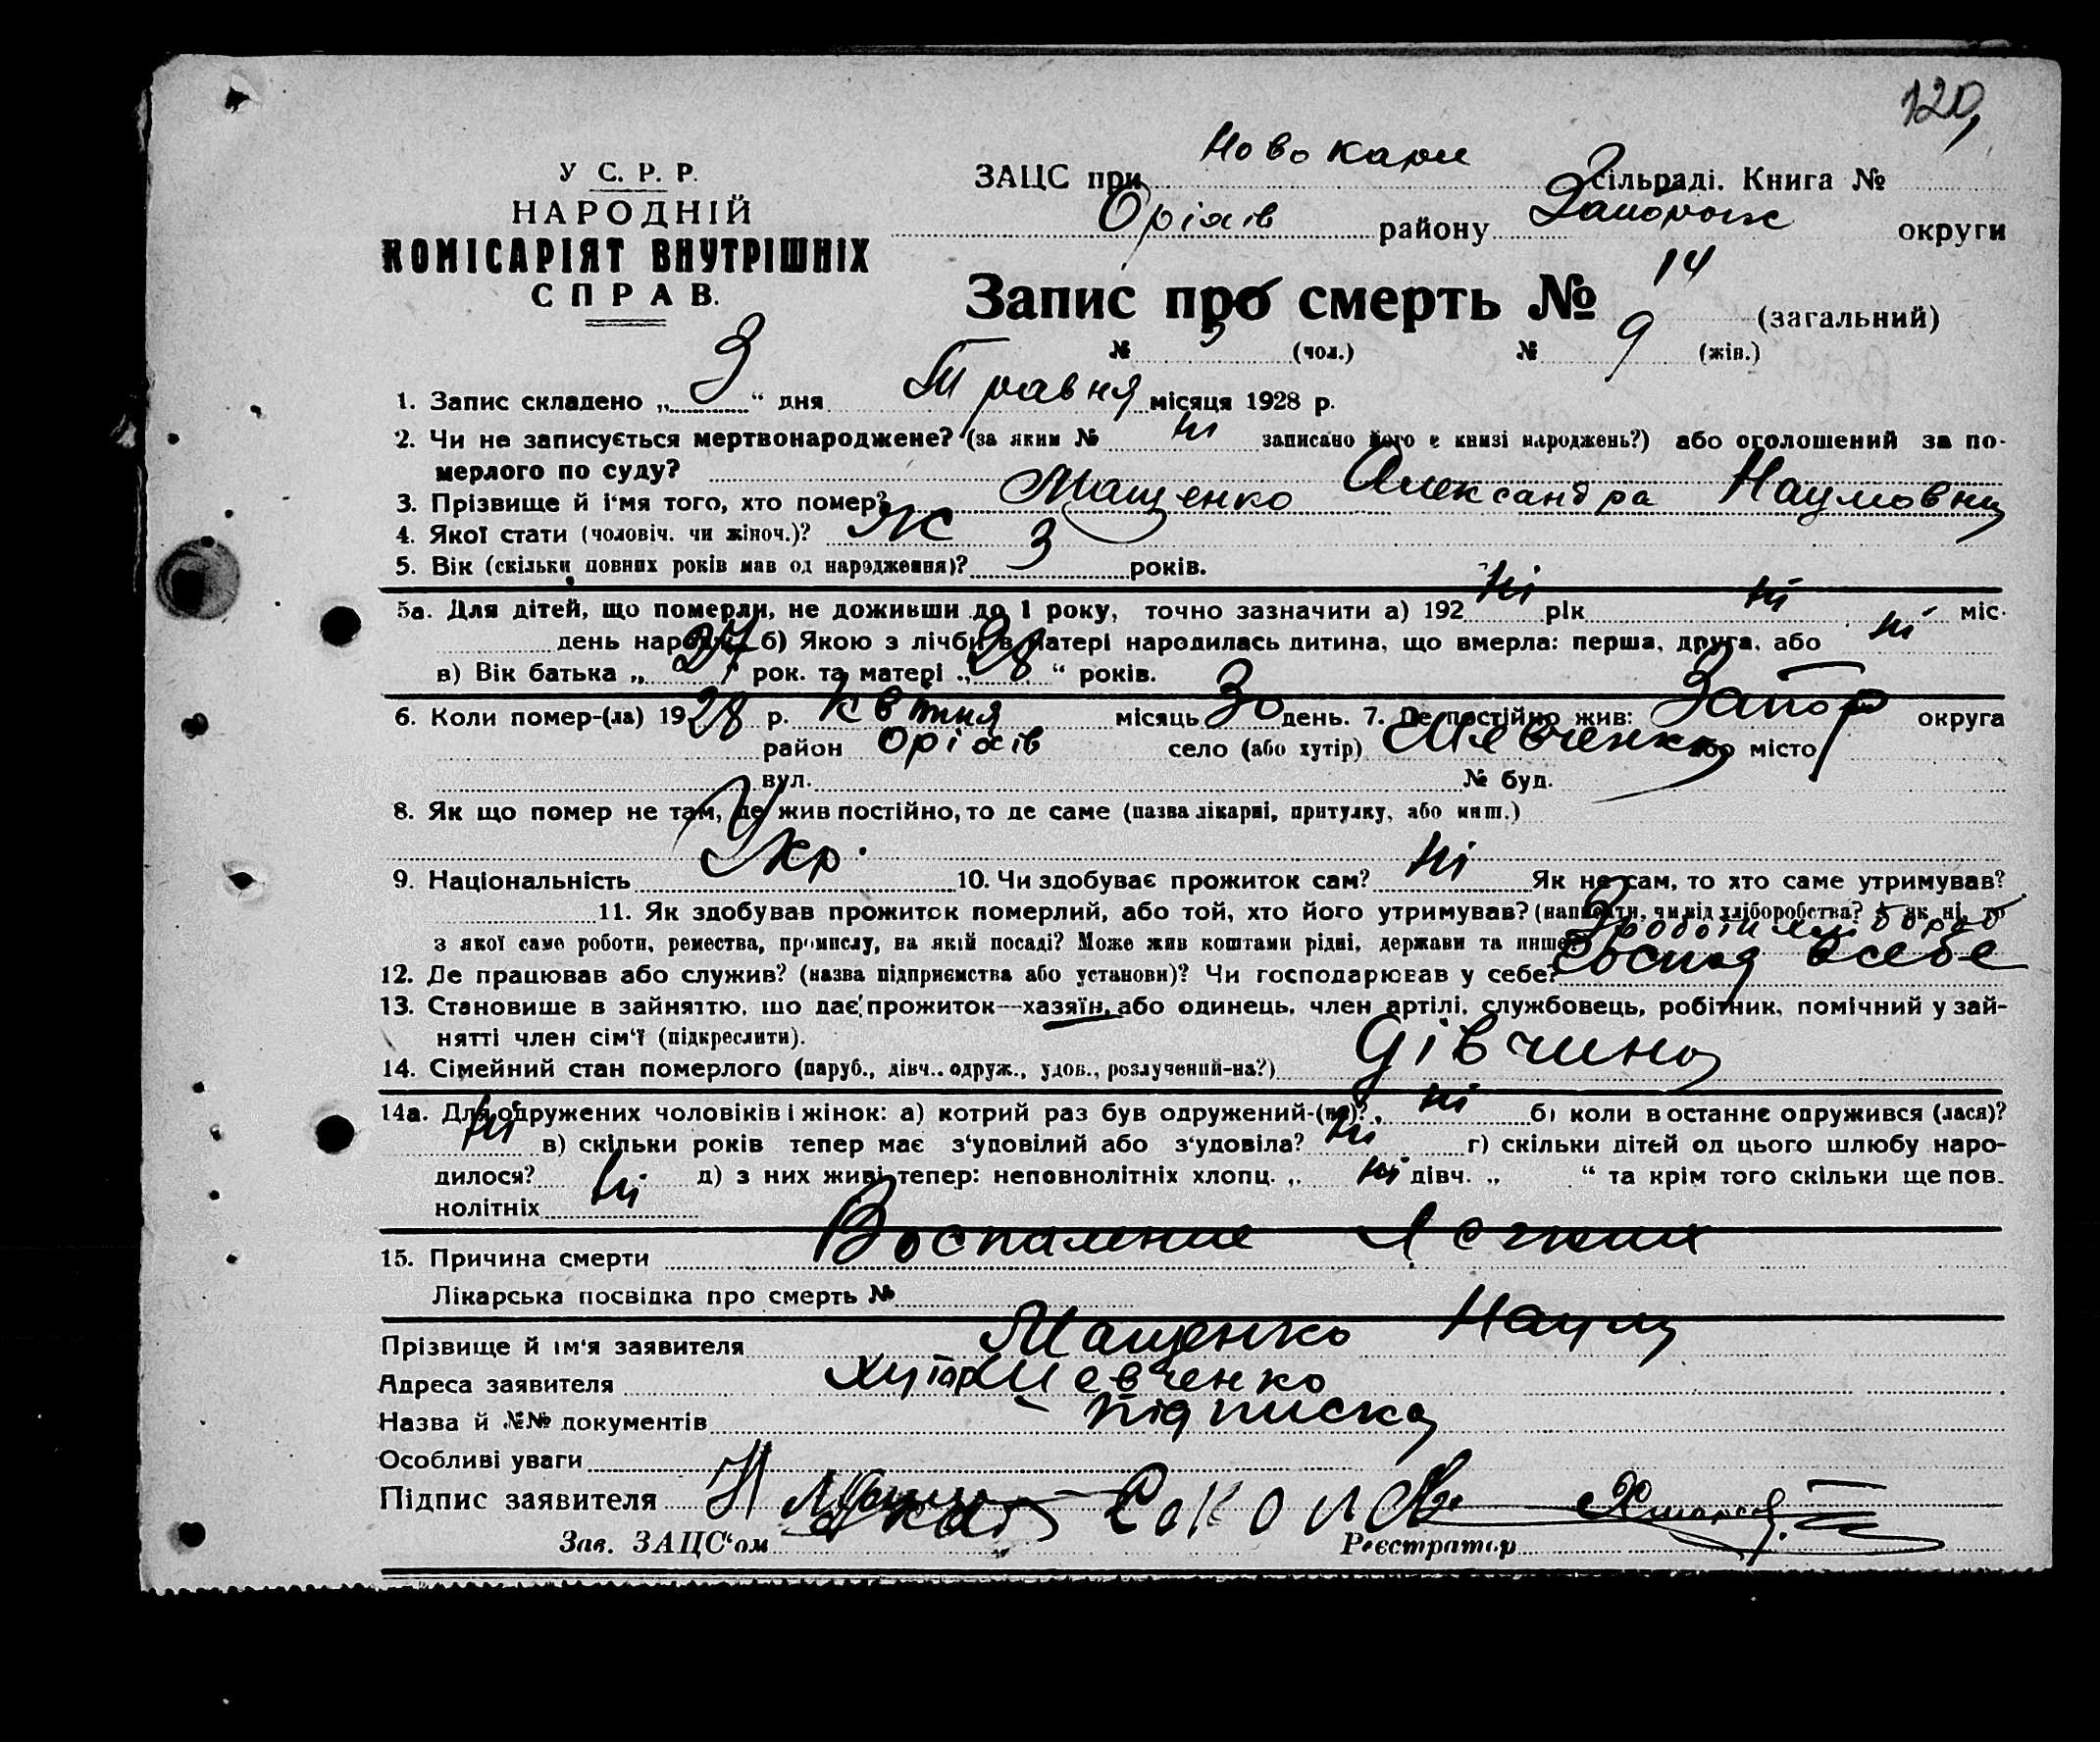 120,
У С. Р. Р.
НАРОДНІЙ
КОМІСАРІЯТ ВНУТРІШНІХ
СПРАВ.
ЗАЦС при Новокарл сільраді. Книга № 2
Оріхів району Запорож округи
Запис про смерть № 14 (загальний)
№ 5 (чол.) № 9 (жін.)
1. Запис складено „ 3 “ дня Травня місяця 1928 р.
2. Чи не записується мертвонароджене? (за яким № ні записано його в книзі народжень?) або оголошений за по-
мерлого по суду?
3. Прізвище й і‘мя того, хто помер? Мащенко Александра Наумовна
4. Якої стати (чоловіч. чи жіноч.)? Ж
5. Вік (скільки повних років мав од народження)? 3 років.
5а. Для дітей, що померли, не доживши до 1 року, точно зазначити а) 192 ні рік ні міс.
день народж. б) Якою з лічби в матері народилась дитина, що вмерла: перша, друга, або ні
в) Вік батька „ 27 “ рок. та матері „ 28 “ років.
6. Коли помер-(ла) 1928 р. Квітня місяць 30 день. 7. Де постійно жив: Запор округа
район Оріхів село (або хутір) Шевченко або місто
вул. № буд.
8. Як що помер не там, де жив постійно, то де саме (назва лікарні, притулку, або инш.)
9. Національність Укр. 10. Чи здобуває прожиток сам? ні Як не сам, то хто саме утримував?
11. Як здобував прожиток померлий, або той, хто його утримував? (написати, чи від хліборобства? А як ні, то
з якої саме роботи, ремества, промислу, на якій посаді? Може жив коштами рідні, держави та инше?)
12. Де працював або служив? (назва підприємства або установи)? Чи господарював у себе? Господ всебе
13. Становище в зайняттю, що дає прожиток—хазяїн, або одинець, член артілі, службовець, робітник, помічний у зай-
нятті член сім‘ї (підкреслити).
14. Сімейний стан померлого (паруб., дівч., одруж., удов., розлучений-на?) дівчина
14а. Для одружених чоловіків і жінок: а) котрий раз був одружений-(на)? ні б) коли востаннє одружився (лася)?
ні в) скільки років тепер має з‘удовілий або з‘удовіла? ні г) скільки дітей од цього шлюбу наро-
дилося? ні д) з них живі тепер: неповнолітніх хлопц. „ ні дівч. „ “ та крім того скільки ще пов-
нолітніх
15. Причина смерти Воспаление легких
Лікарська посвідка про смерть №
Прізвище й ім‘я заявителя Мащенко Наум
Адреса заявителя хутор Шевченко
Назва й №№ документів підписка
Особливі уваги
Підпис заявителя
Зав. ЗАЦС‘ом Реєстратор